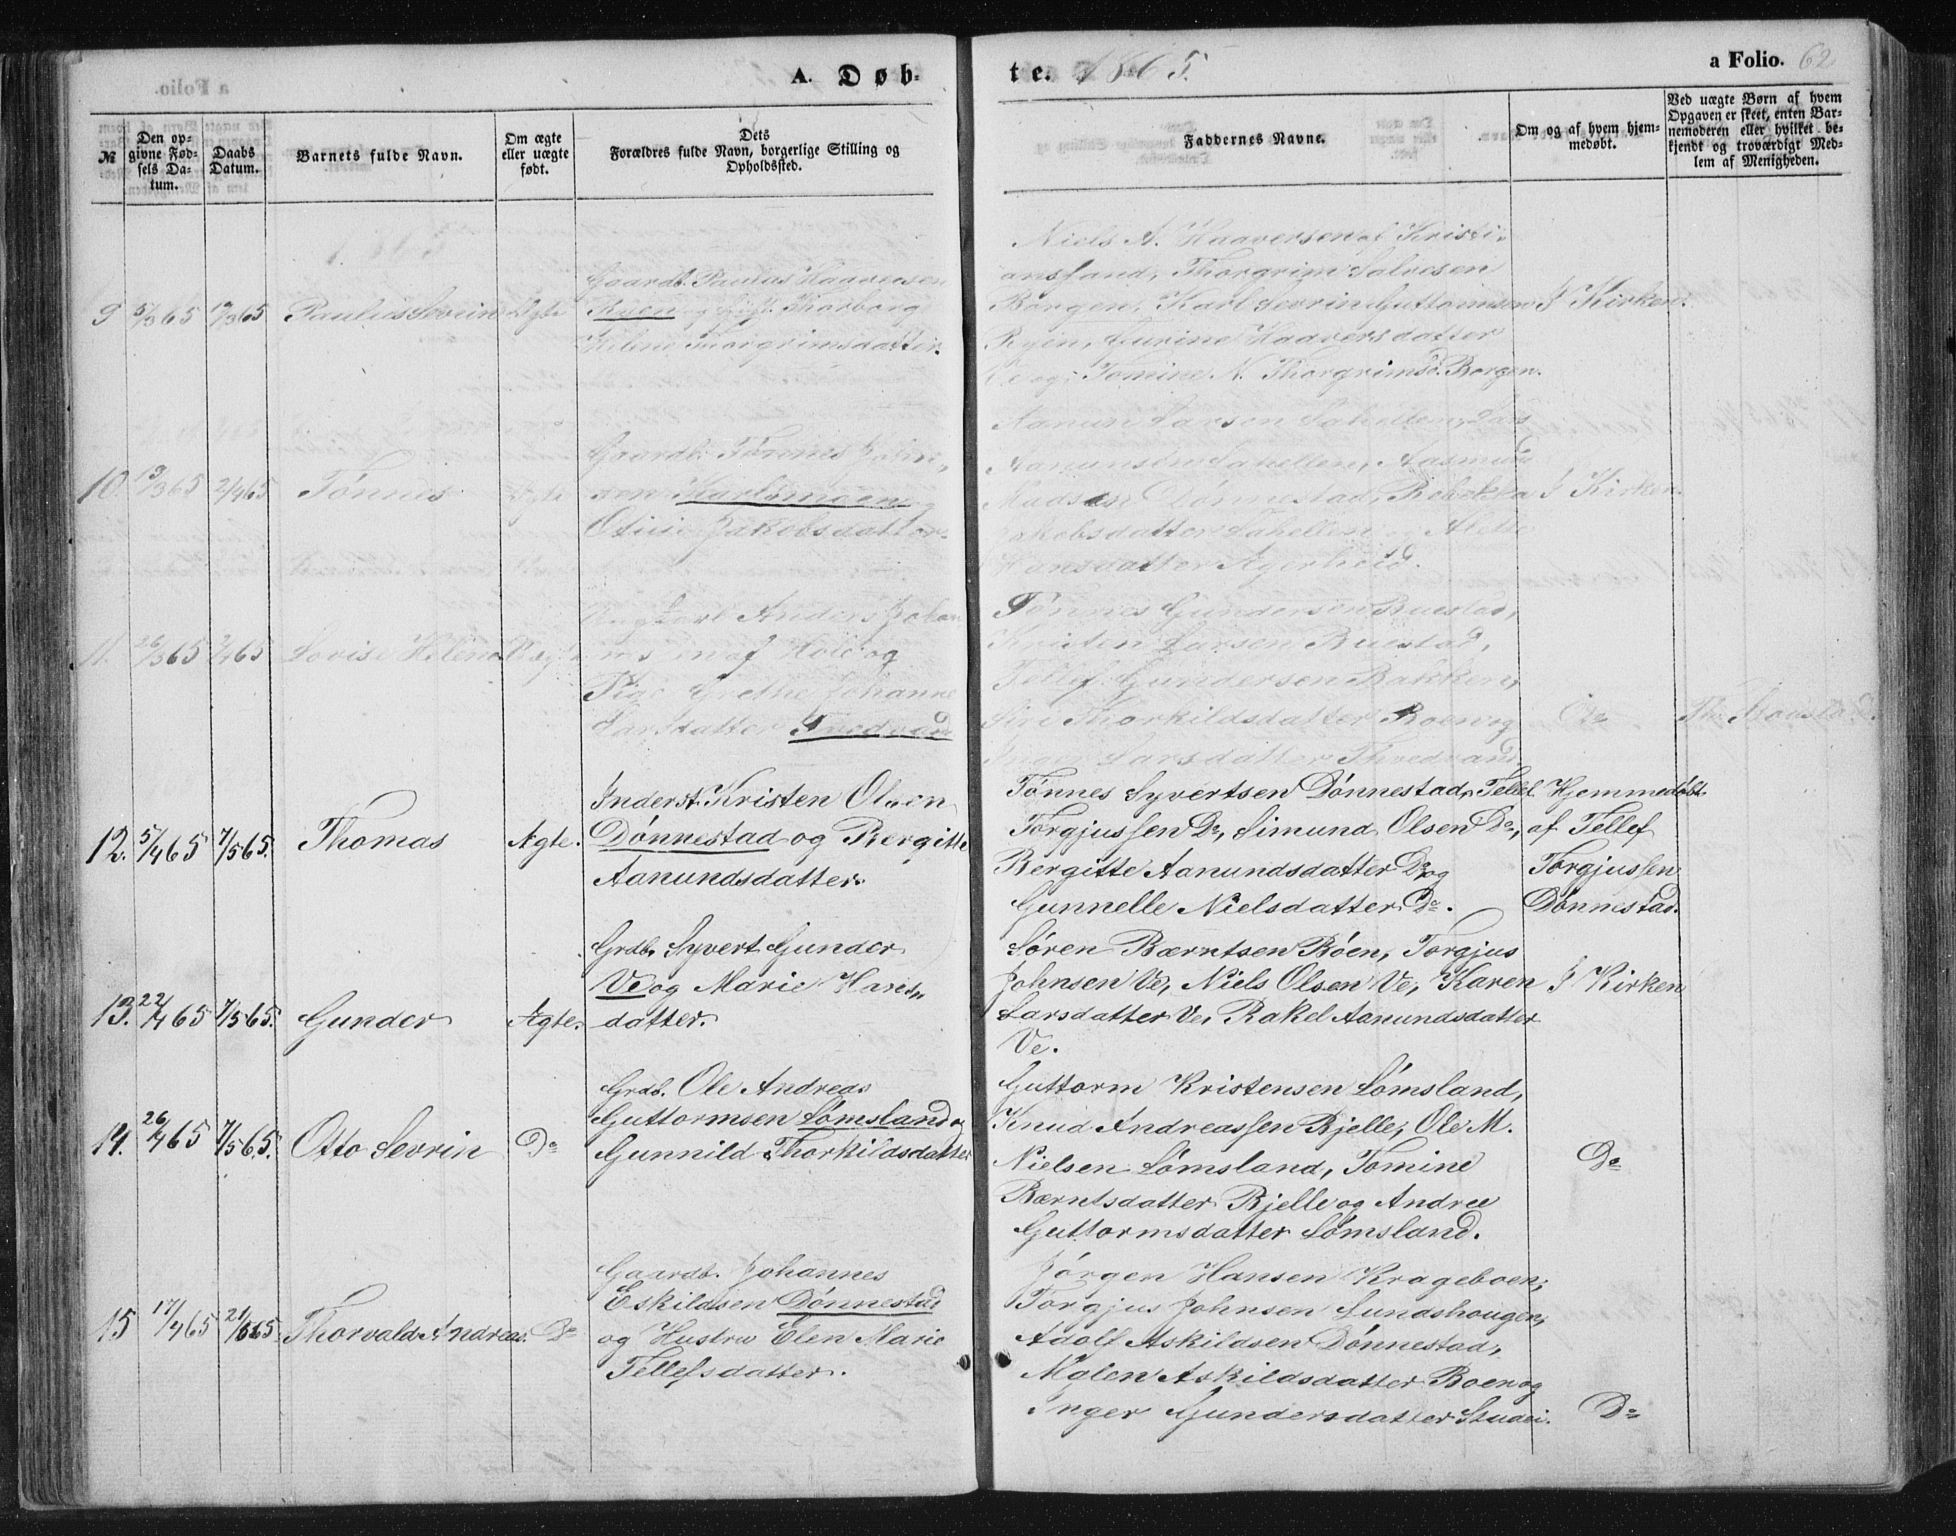 A. Døb-
te. 1865.
a Folio. 62
№
Den op-
givne Fød-
sels Da-
tum.
Daabs
Datum.
Barnets fulde Navn.
Om ægte
eller uægte
født.
Dets
Forældres fulde Navn, borgerlige Stilling og
Opholdssted.
Faddernes Navne.
Om og af hvem hjem-
medøbt.
Ved uægte Børn af hvem
Opgaven er skeet, enten Bar-
nemoderen eller hvilket be-
kjendt og troværdigt Med-
lem af Menigheden.
9 5/3 65 17/3 65 Paulus Sevrin Ægte
Gaardb. Paulus Haaversen
Ryen og Thorborg
Helene Thorgrimsdatter.
Niels A. Haaversen af Kristi-
ansand, Thorgrim Salvesen
Borgen, Karl Sevrin Guttormsen
Ryen, Gurine Haaversdatter
og Tomine N. Thorgrimsd. Borgen.
I Kirken.
10. 13/3 65 2/4 65 Tønnes Ægte
Gaardb. Tønnes John-
sen Karlsmoen
Jakobsdatter.
Aanun Larsen Sahellen, Lars
Aanunsen Sahellen, Aasmund
Madsen Dønnestad, Rebekka
Jakobsdatter Sahellen Alette
Hansdatter Agerheid.
I Kirken.
11. 26/3 65 2/4 65 Lovise Helene
Ungkarl Anders Johan
af Hole og
Pige Grethe Johanne
Larsdatter Tvedvand
Tønnes Gundersen Ruestad,
Kristen Larsen Ruestad,
Tellef Gundersen Bakken,
Siri Thorkildsdatter Boen og
Larsdatter Thvedvand
Do
12. 5/4 65 7/5 65. Thomas Ægte.
Inderst. Kristen Olsen
Dønnestad og Bergitte
Aanundsdatter.
Tønnes Syvertsen Dønnestad, Tellef
Torgjussen Do, Simund Olsen Do,
Bergitte Aanundsdatter Do og
Gunnelle Nielsdatter Do.
Hjemmedøbt
af Tellef
Torgjussen
Dønnestad.
13. 22/4 65 7/5 65. Gunder Ægte.
Grdb. Syvert Gunder
Ve og Marie Hans-
datter.
Søren Bærntsen Bøen, Torgjus
Johnsen Ve, Niels Olsen Ve, Karen
Larsdatter Ve, Rakel Aanundsdatter
Ve.
I Kirken
14. 26/4 65 7/5 65. Otto Sevrin Do
Grdb. Ole Andreas
Guttormsen Sømsland og
Gunnild Thorkildsdatter
Guttorm Kristensen Sømsland,
Knud Andreassen Bjelle, Ole M.
Nielsen Sømsland, Tomine
Bærntsdatter Bjelle og Andree
Guttormsdatter Sømsland.
Do
15 17/4 65 21/5 65 Thorvald Andreas. Do
Gaardb. Johannes
Eskildsen Dønnestad
og Hustru Elen Marie
Tellefsdatter.
Jørgen Hansen Krageboen,
Torgjus Johnsen Sundshougen,
Adolf Askildsen Dønnestad,
Malen Askildsdatter Boen og
Inger Gundersdatter Studei.
Do